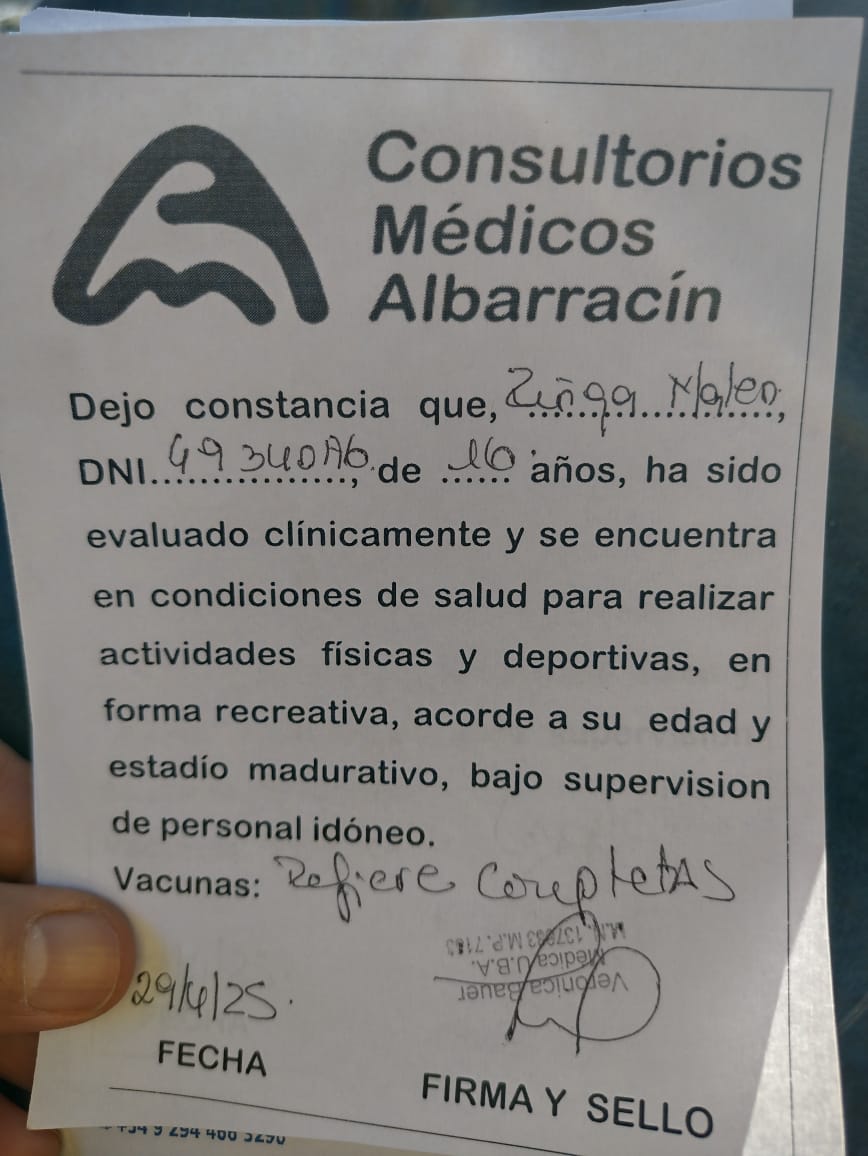 Consultorios
Médicos
Albarracín
Dejo constancia que, Zúñga Mateo,
DNI 49340, de 16 años, ha sido
evaluado clínicamente y se encuentra
en condiciones de salud para realizar
actividades físicas y deportivas, en
forma recreativa, acorde a su edad y
estadío madurativo, bajo supervision
de personal idóneo.
Vacunas: Refiere completas
M.P. 7183
Médica U.B.A.
Verónica Bauer
29/4/25.
FECHA
FIRMA Y SELLO